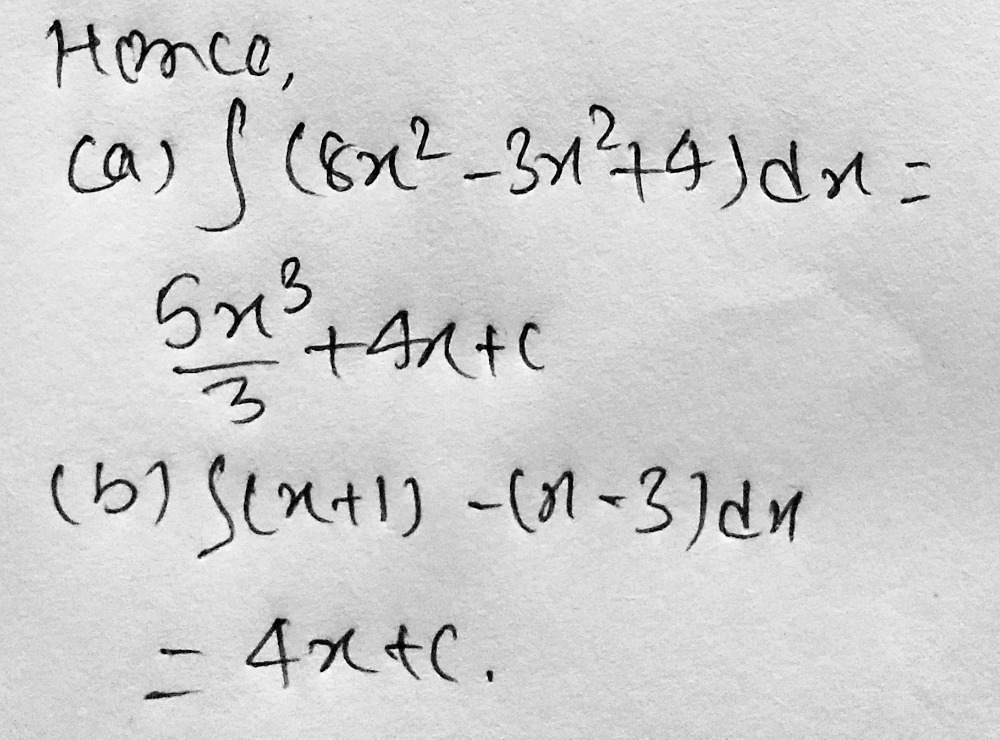 Hence,
(a) ∫ (8x² - 3x² + 4) dx =
5x³/3 + 4x + c
(b) ∫(x+1) - (x-3) dx
= 4x + c.